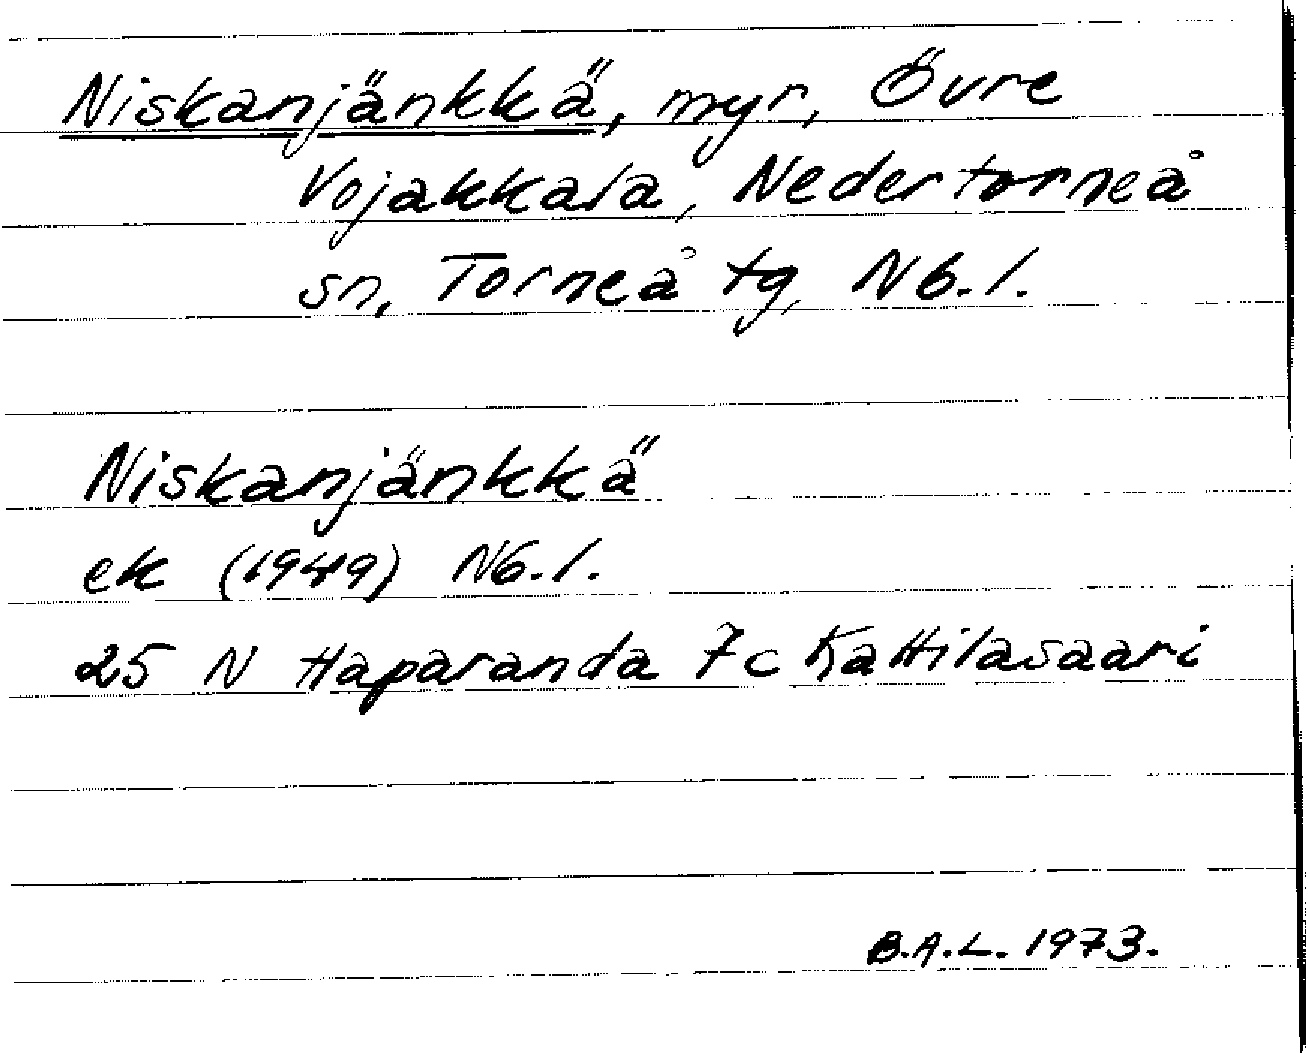 Niskanjänkkä, myr, Övre
Vojakkala, Nedertorneå
sn, Torneå tg, Nb. l.
Niskanjänkkä
ek (1949) Nb. l.
25 N Haparanda 7c Kattilasaari
B.A.L. 1973.